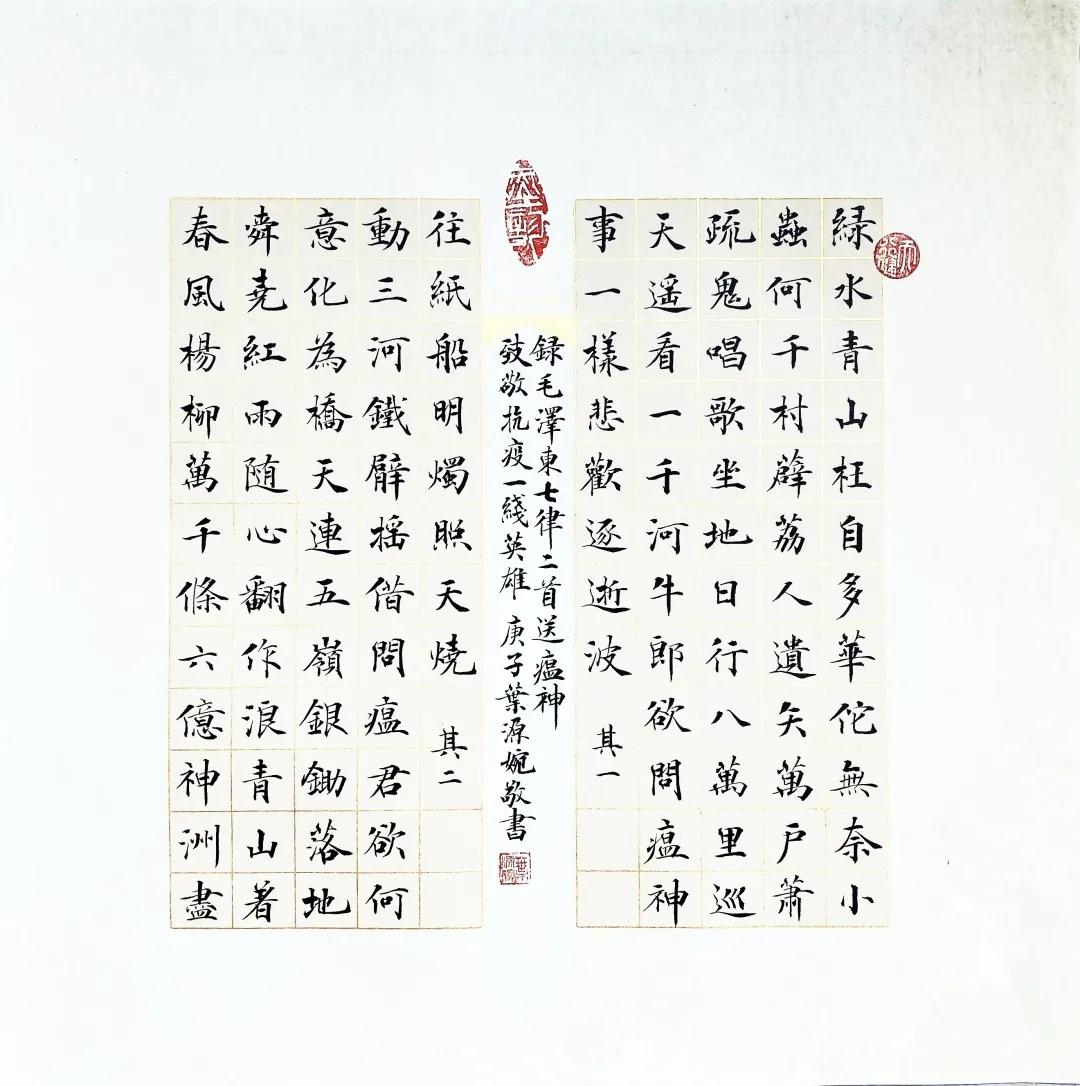 緑水青山枉自多華佗無奈小
蟲何千村薜荔人遺矢萬戶簫
疏鬼唱歌坐地日行八萬里巡
天遥看一千河牛郎欲問瘟神
事一樣悲歡逐逝波 其一
春風楊柳萬千條六億神洲盡
舜堯紅雨随心翻作浪青山著
意化為橋天連五嶺銀鋤落地
動三河鐵臂摇借問瘟君欲何
往紙船明燭照天燒 其二
録毛澤東七律二首送瘟神
致敬抗疫一綫英雄 庚子葉源婉敬書